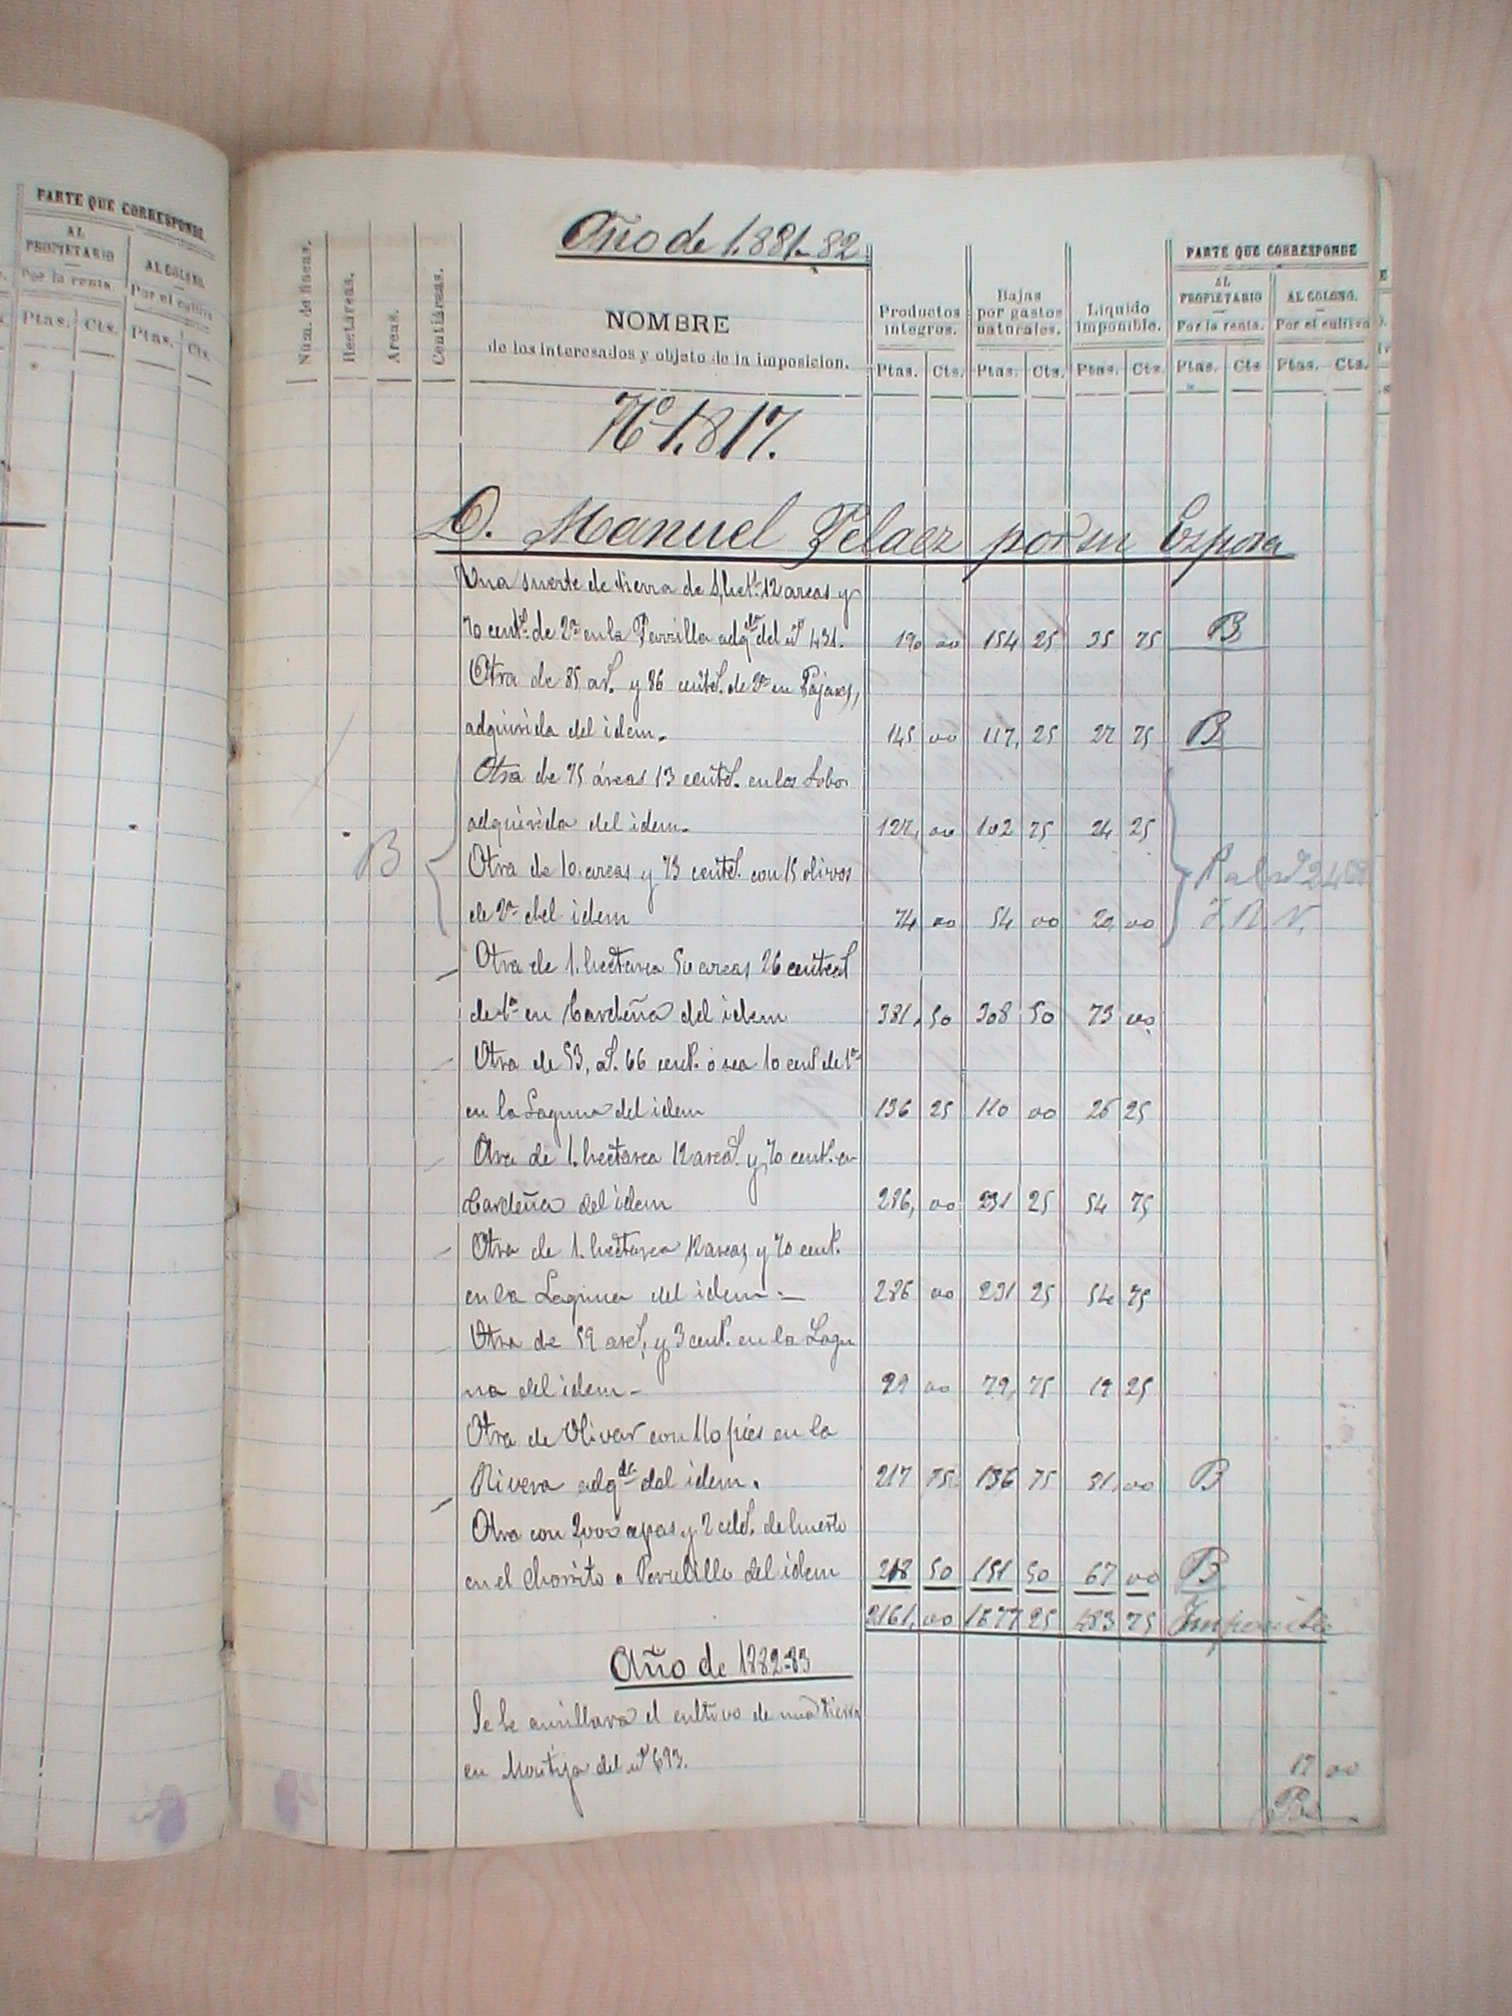 PARTE QUE CORRESPONDE
AL PROPIETARIO
Por la renta.
AL COLONO.
Por el cultivo
Ptas. Cts. Ptas. Cts.
Año de 1.881-82
Núm. de fincas.
Hectáreas.
Areas.
Centiáreas.
NOMBRE
de los interesados y objeto de la imposicion.
Productos íntegros.
Bajas por gastos naturales.
Líquido imponible.
PARTE QUE CORRESPONDE
AL PROPIETARIO
Por la renta.
AL COLONO.
Por el cultivo
Ptas. Cts. Ptas. Cts. Ptas. Cts. Ptas. Cts Ptas. Cts.
Nº 1.817.
D. Manuel Pelaez por su Esposa
Una suerte de tierra de 1,hect.ª 12 areas y
70 cent.s de 2ª en la Parrilla adq.da del nº 431. 190 00 154 25 35 75 B
Otra de 85 as. y 86 cents. de 2ª en Pajares,
adquirida del idem. 145 00 117, 25 27 75 B
Otra de 75 áreas 13 cents. en los Lobos
adquirida del idem. 127, 00 102 75 24 25
B
Otra de 10 areas y 73 cents. con 15 olivos
de 2ª del idem 74 00 54 00 20 00
F. R. N.
Otra de 1. hectarea 50 areas 26 cents
de 1ª en Cardeña del idem 381, 50 308 50 73 00
Otra de 53, as. 66 cent. ó sea 10 cel.s de 1ª
en la Laguna del idem 136 25 110 00 26 25
Otra de 1. hectarea 12 areas. y 70 cent. en
Cardeña del idem 286, 00 231 25 54 75
Otra de 1. hectarea 12 areas, y 70 cent.
en la Laguna del idem 286 00 231 25 54 75
Otra de 39 ares, y 3 cent. en la Lagu
na del idem 99 00 79, 75 19 25
Otra de Olivar con 110 pies en la
Rivera adq.da del idem. 217 75 136 75 81, 00 B
Otra con 2,000 cepas y 2 cels. de huerto
en el Chorrito o Perulillo del idem 218 50 151 50 67 00 B
2161, 00 1677 25 483 75 Imponible
Año de 1882-83
Se le amillara el cultivo de una tierra
en Montija del nº 693. 17 00